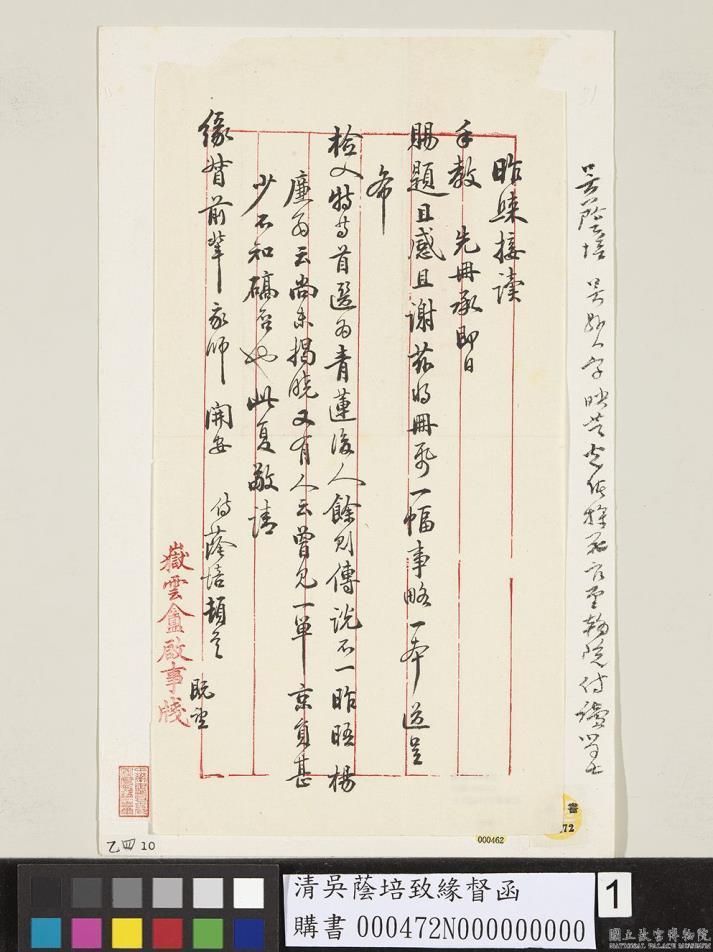 吳蔭培 吳縣人字映芝光緒探花官至翰院侍讀學士
昨槼接讀
手教 先冊承即日
賜題且感且謝茲將冊頁一幅事略一本送呈
希
檢入特旨首選為青蓮後人餘則傳說不一昨晤楊
廉翁云尚未揭曉又有人云曾見一單京員甚
少不知碻否也此复敬請
緣督前輩家師 開安 侍蔭培頓首 既望
嶽雲盦啟事牋
乙四 10
000462
書
72
清吳蔭培致緣督函
購書 000472N000000000
1
國立故宮博物院
NATIONAL PALACE MUSEUM